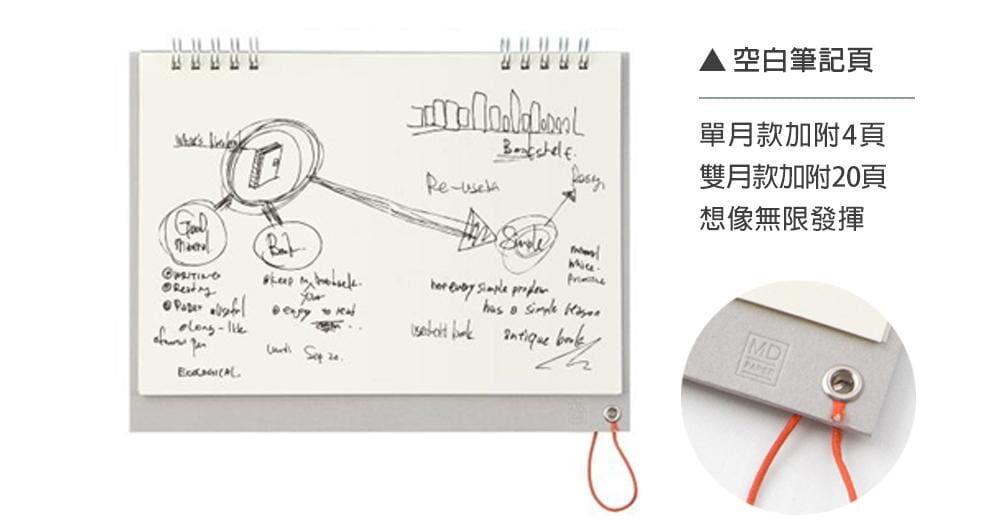 ▲ 空白筆記頁
單月款加附4頁
雙月款加附20頁
想像無限發揮
Bookshelf.
Re-use
Good
Material
Book
Simple
WRITING
Reading
Paper useful
long-life
pen
Keep my bookshelf.
your
enjoy to read
until Sep 20.
ECOLOGICAL.
not every simple problem
has a simple reason
used old book
antique book
MD
PAPER